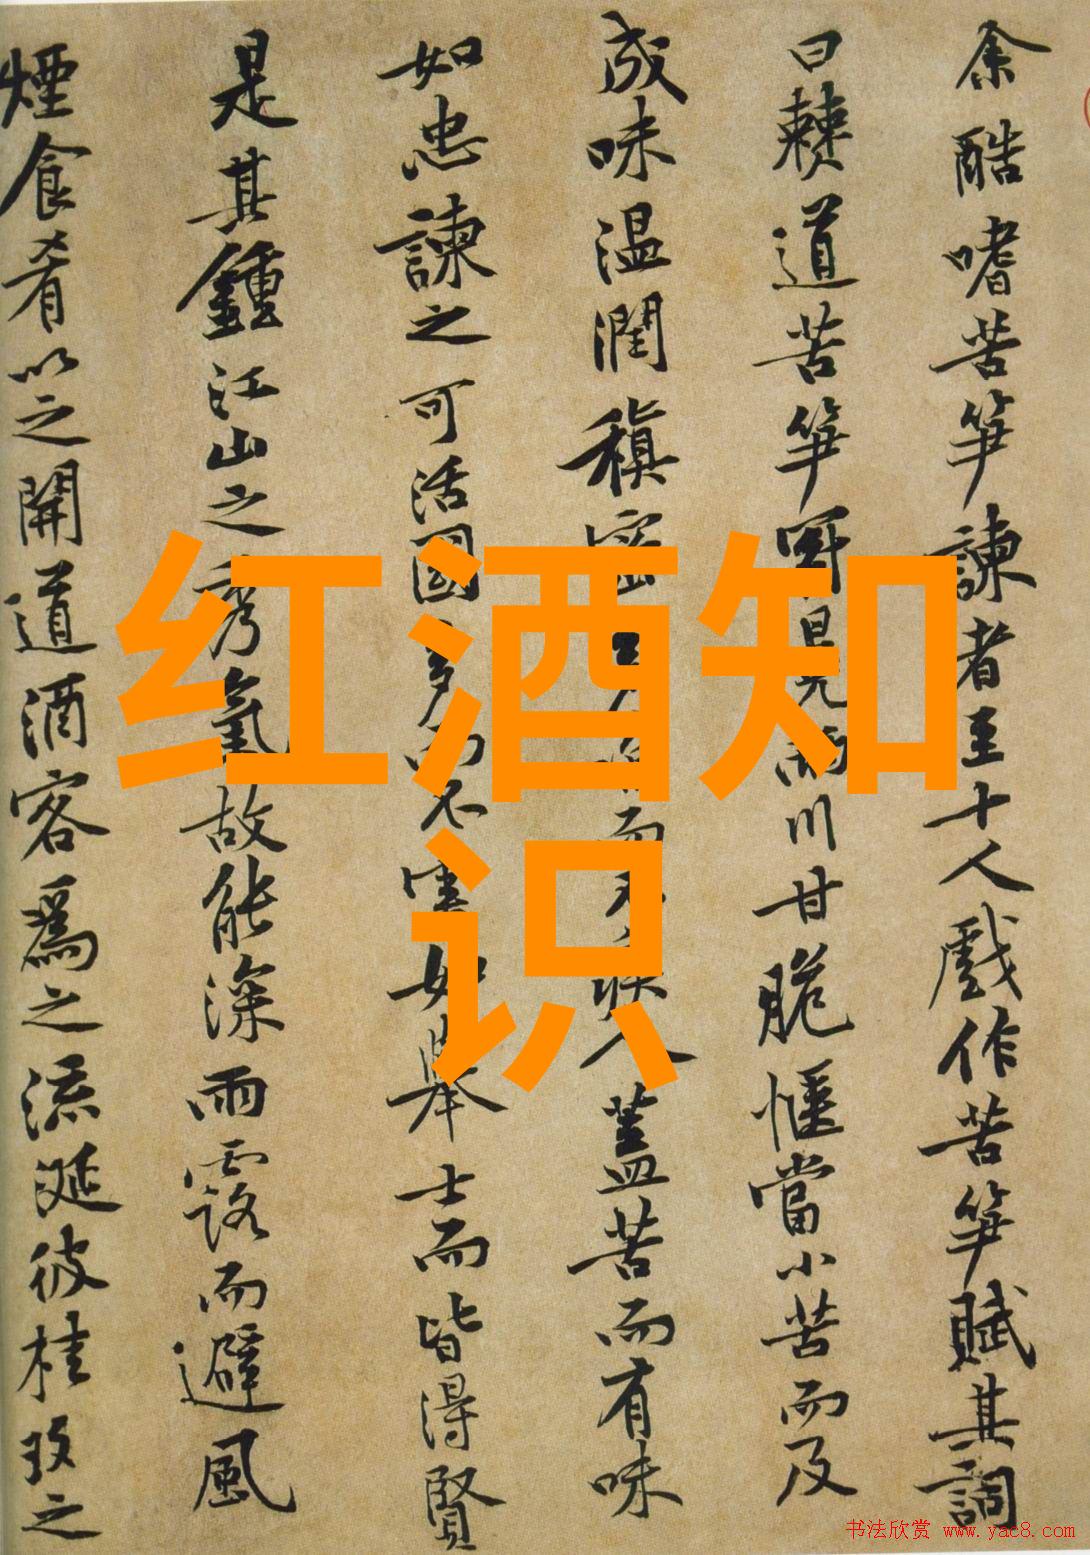 余酷嗜苦笋諫者至十人戲作苦笋賦其詞
曰僰道苦笋冠冕兩川甘脆愜當小苦而及
成味温潤稹密多而不疾人蓋苦而有味
如忠諫之可活國多而不害如舉士而皆得賢
是其鍾江山之秀氣故能深雨露而避風
煙食肴以之開道酒客爲之流涎彼桂玫之
红酒知
识
书法欣赏 www.yac8.com